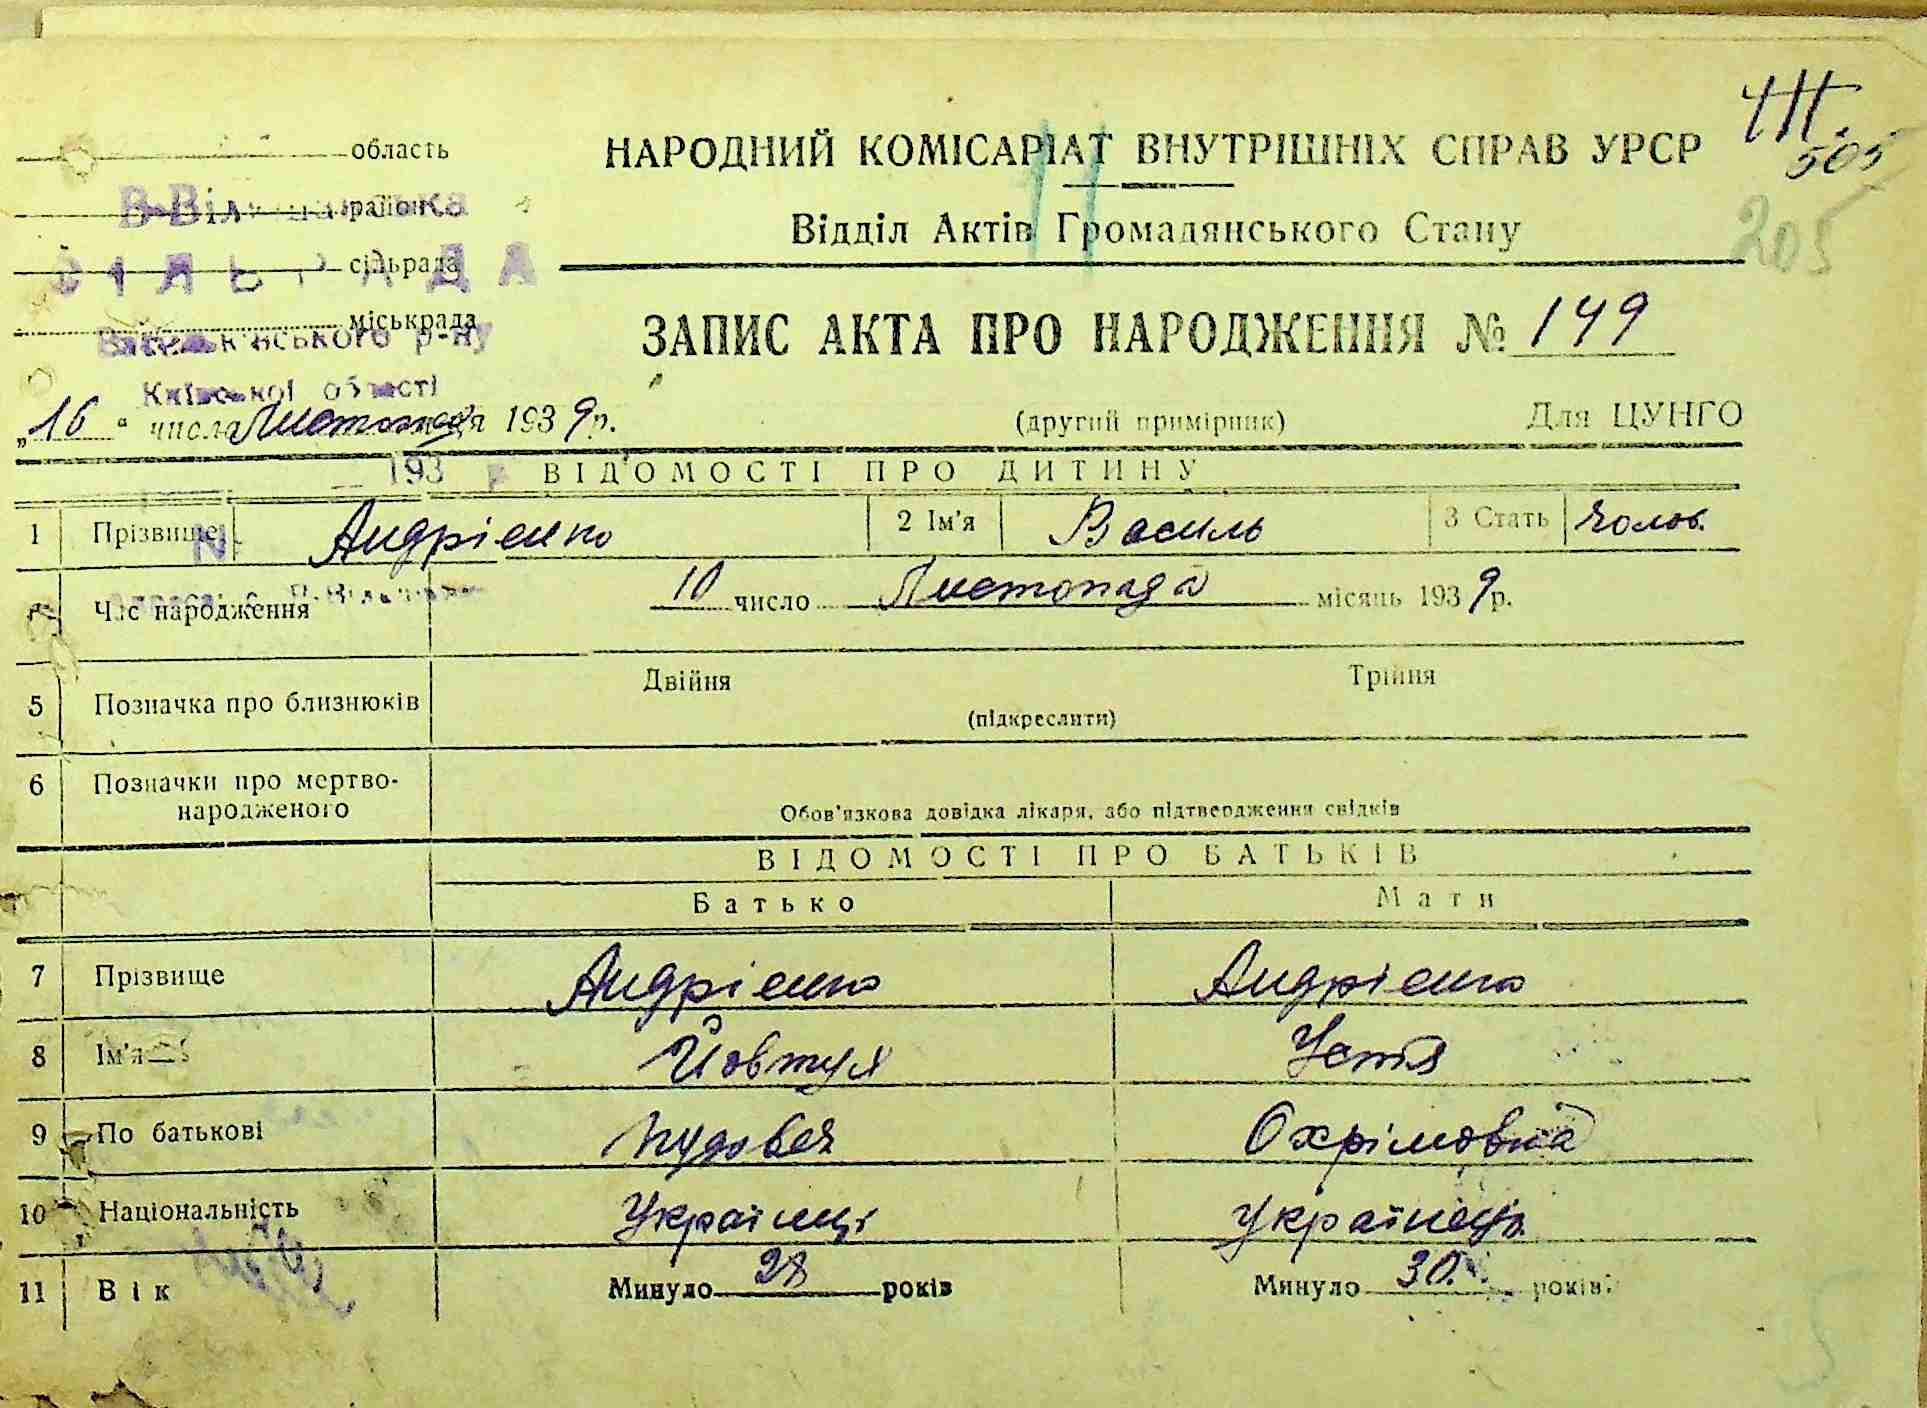 область
НАРОДНИЙ КОМІСАРІАТ ВНУТРІШНІХ СПРАВ УРСР
505
205
район
Відділ Актів Громадянського Стану
сільрада
СІЛЬРАДА
міськрада
р-ну
ЗАПИС АКТА ПРО НАРОДЖЕННЯ № 149
Київської області
„16“ числа Листопада 1939р.
(другий примірник)
Для ЦУНГО
193 р
ВІДОМОСТІ ПРО ДИТИНУ
1 Прізвище Андрієнко 2 Ім'я Василь 3 Стать Чолов.
№
Час народження 10 число Листопада місяць 1939р.
5 Позначка про близнюків Двійня Трійня
(підкреслити)
6 Позначки про мертво-
народженого
Обов'язкова довідка лікаря, або підтвердження свідків
ВІДОМОСТІ ПРО БАТЬКІВ
Батько Мати
7 Прізвище Андрієнко Андрієнко
8 Ім'я Йовтух Устя
9 По батькові Охрімовна
10 Національність Українці Українець
11 Вік Минуло 28 років Минуло 30. років